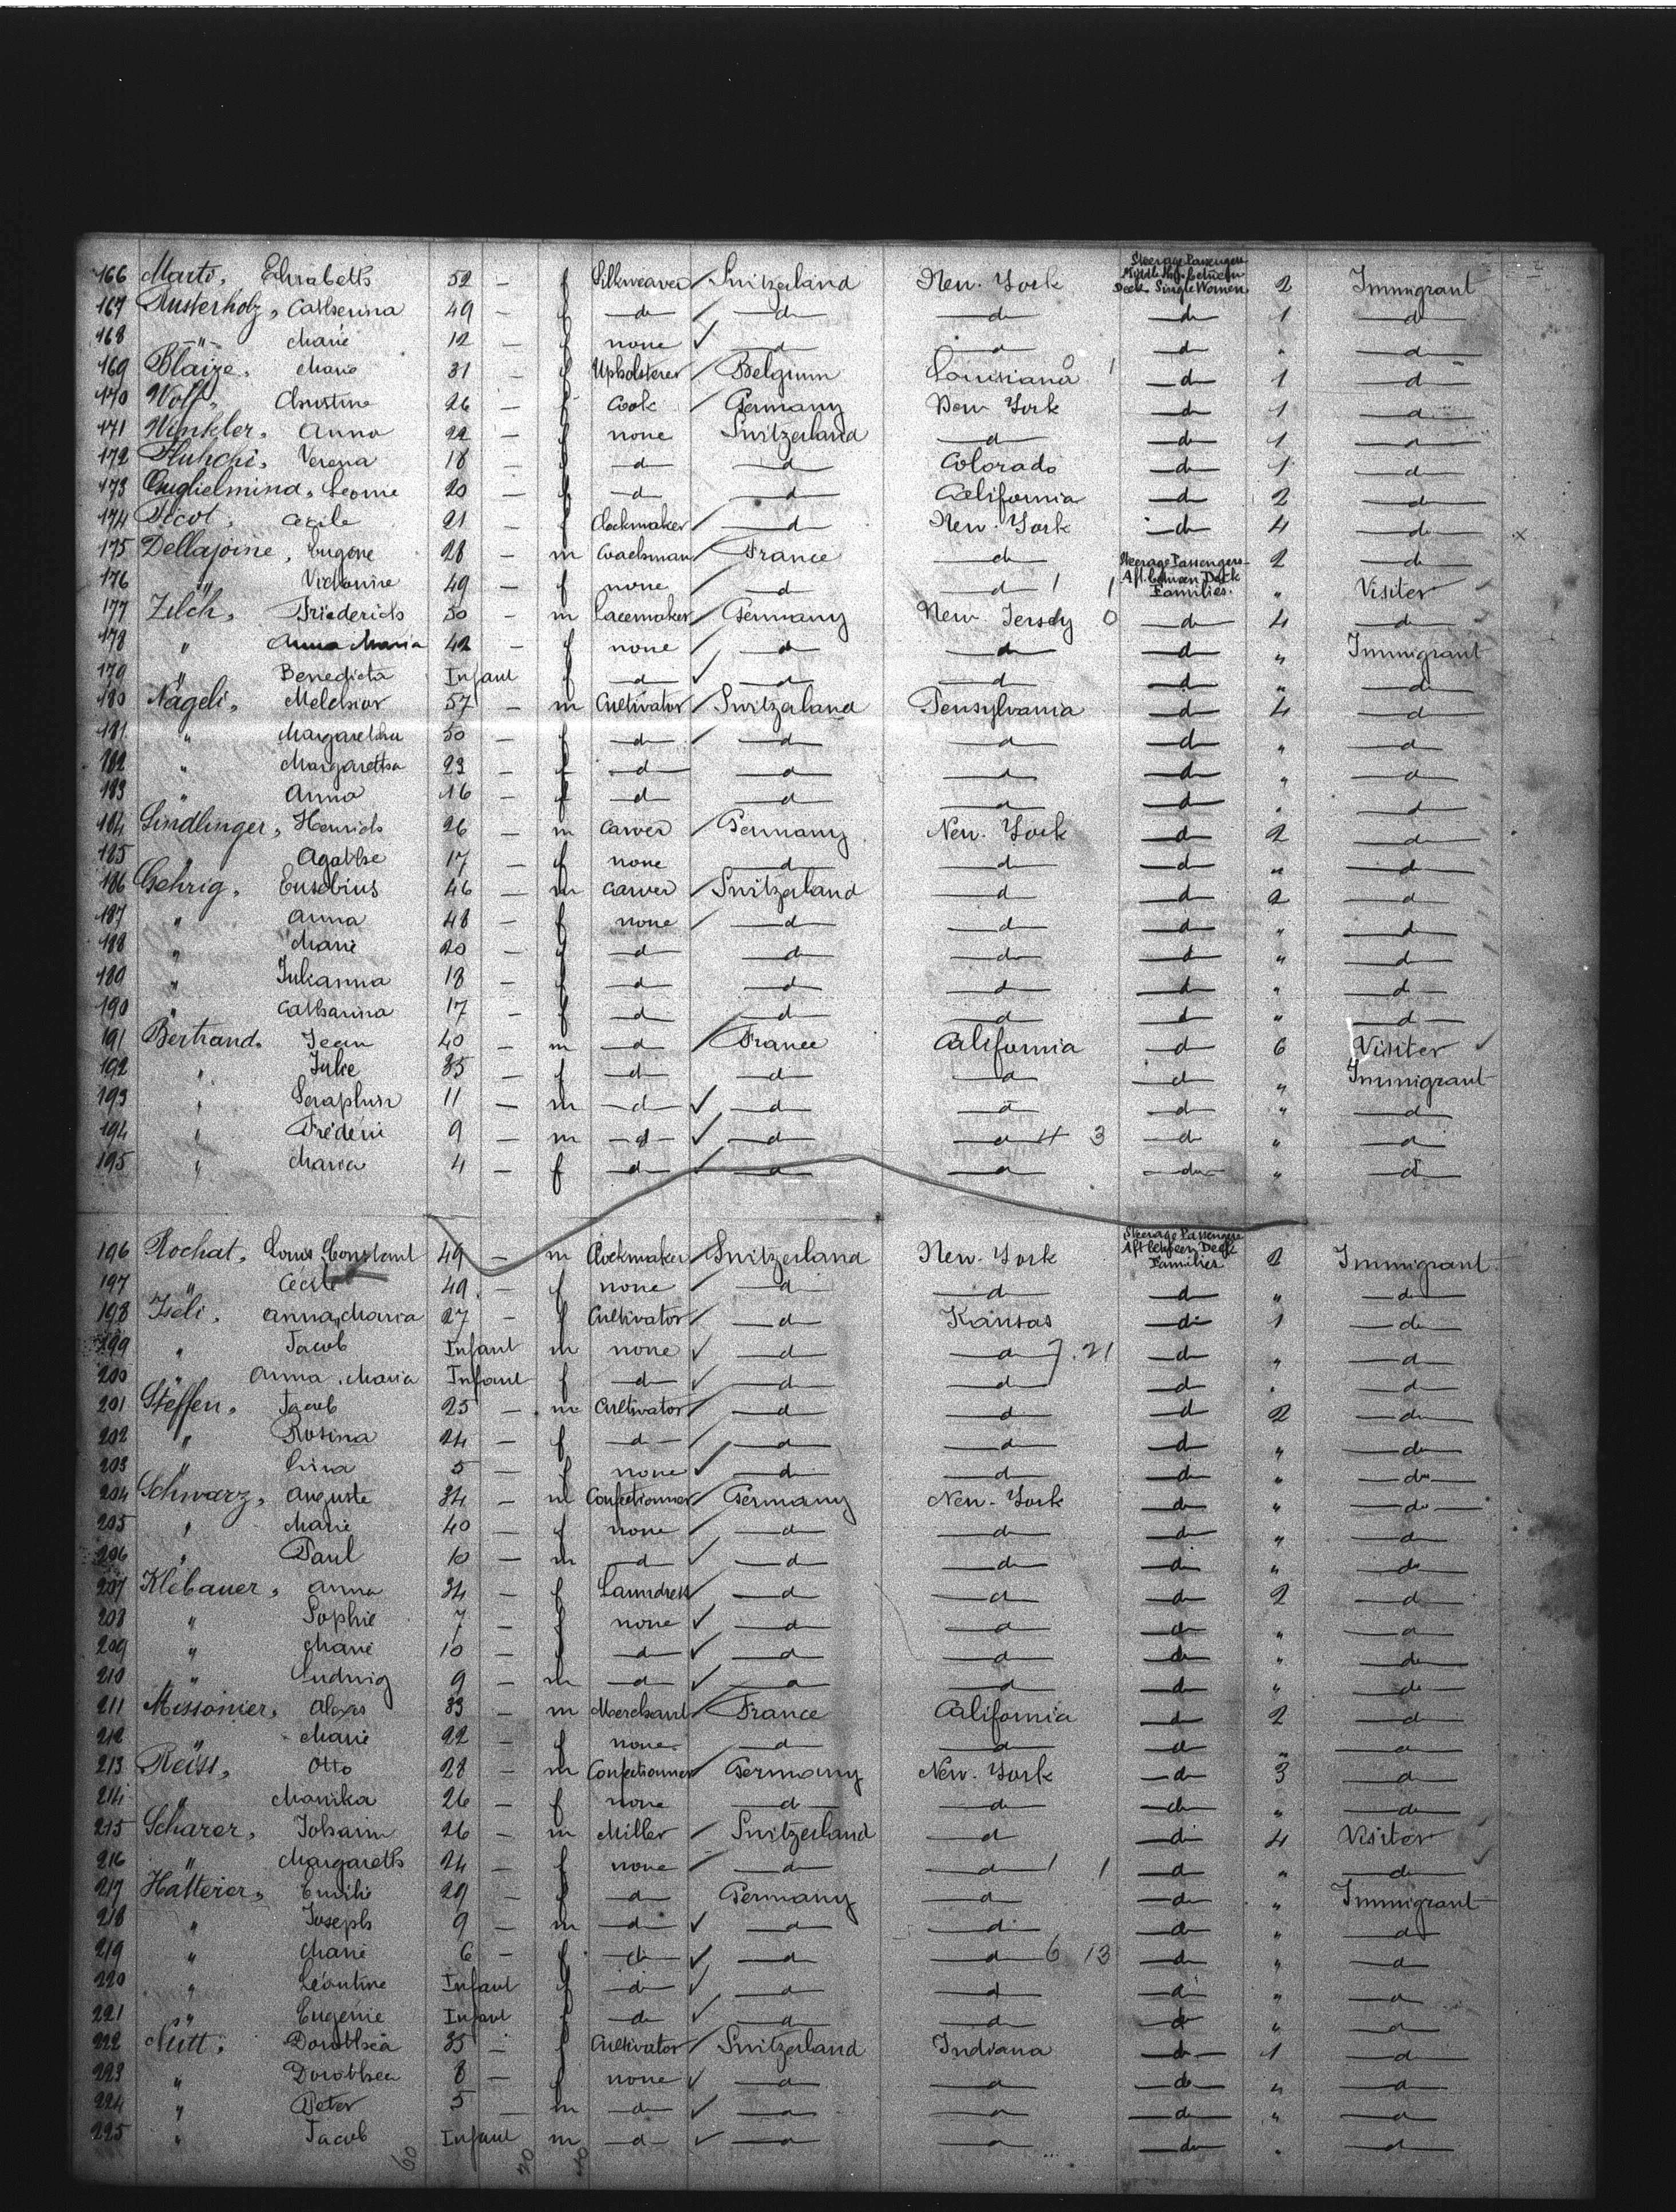 166 Marti, Elisabeth 52 — f Silkweaver Switzerland New-York Steerage Passengers Middle Ship between Deck Single Women 2 Immigrant
167 Austerholz, Catherina 49 — f — d — — d — — d — — d — 1 — d —
168 — " — Marie 12 — f none ✓ — d — — d — — d — " — d —
169 Blaize, Marie 31 — f Upholsterer Belgium Louisiana 0 1 — d — 1 — d —
170 Wolf, Christine 26 — f Cook Germany New York — d — 1 — d —
171 Winkler, Anna 22 — f none Switzerland — d — — d — 1 — d —
172 Verena 18 — f — d — — d — Colorado — d — 1 — d —
173 Guglielmina, Leonie 20 — f — d — — d — California — d — 2 — d —
174 Picot, Cecile 21 — f Clockmaker — d — New-York — d — 4 — d — x
175 Dellajoine, Eugene 28 — m Coachman France — d — Steerage Passengers Aft between Deck Families. 2 — d —
176 " Victorine 49 — f none — d — — d — 1 1 " Visiter
177 Zilch, Friederich 50 — m Lacemaker Germany New Jersey 0 — d — 4 — d —
178 " Anna Maria 42 — f none — d — — d — — d — " Immigrant
179 " Benedicta Infant f — d — ✓ — d — — d — — d — " — d —
180 Nägeli, Melchior 57 — m Cultivator Switzerland Pensylvania — d — 4 — d —
181 " Margaretha 50 — f — d — — d — — d — — d — " — d —
182 " Margaretha 23 — f — d — — d — — d — — d — " — d —
183 " Anna 16 — f — d — — d — — d — — d — " — d —
184 Lindlinger, Henrich 26 — m Carver Germany New-York — d — 2 — d —
185 Agathe 17 — f none — d — — d — — d — " — d —
186 Gehrig, Eusebius 46 — m Carver Switzerland — d — — d — 2 — d —
187 " Anna 48 — f none — d — — d — — d — " — d —
188 " Marie 20 — f — d — — d — — d — — d — " — d —
189 " Julianna 18 — f — d — — d — — d — — d — " — d —
190 " Catharina 17 — f — d — — d — — d — — d — " — d —
191 Bertrand, Jean 40 — m — d — France California — d — 6 Visiter ✓
192 " Julie 35 — f — d — — d — — d — — d — " Immigrant
193 " Seraphin 11 — m — d — ✓ — d — — d — — d — " — d —
194 " Fréderic 9 — m — d — ✓ — d — — d — 4 3 — d — " — d —
195 " Maria 4 — f — d — ✓ — d — — d — — d — " — d —
196 Rochat, Louis Constant 49 — m Clockmaker Switzerland New-York Steerage Passengers Aft between Deck Families 2 Immigrant
197 " Cécile 49 — f none — d — — d — — d — " — d —
198 Iseli, Anna Maria 27 — f Cultivator — d — Kansas — d — 1 — d —
199 " Jacob Infant m none ✓ — d — — d — 7.21 — d — " — d —
200 " Anna Maria Infant f — d — ✓ — d — — d — — d — " — d —
201 Steffen, Jacob 25 — m Cultivator — d — — d — — d — 2 — d —
202 " Rosina 24 — f — d — — d — — d — — d — " — d —
203 " Lina 5 — f none ✓ — d — — d — — d — " — d —
204 Schwarz, Auguste 34 — m Confectionner Germany New-York — d — " — d —
205 " Marie 40 — f none — d — — d — — d — " — d —
206 " Paul 10 — m — d — ✓ — d — — d — — d — " — d —
207 Klebauer, Anna 34 — f Laundress — d — — d — — d — 2 — d —
208 " Sophie 7 — f none ✓ — d — — d — — d — " — d —
209 " Marie 10 — f — d — ✓ — d — — d — — d — " — d —
210 " Ludwig 9 — m — d — ✓ — d — — d — — d — " — d —
211 Missonier, Alexis 33 — m Merchant France California — d — 2 — d —
212 " Marie 22 — f none — d — — d — — d — " — d —
213 Reiss, Otto 28 — m Confectionner Germany New-York — d — 3 — d —
214 " Monika 26 — f none — d — — d — — d — " — d —
215 Scharer, Johann 26 — m Miller Switzerland — d — — d — 4 Visiter ✓
216 " Margareth 24 — f none — d — — d — 1 1 — d — " — d — ✓
217 Hatterer, Emilie 29 — f — d — Germany — d — — d — " Immigrant
218 " Joseph 9 — m — d — ✓ — d — — d — — d — " — d —
219 " Marie 6 — f — d — ✓ — d — — d — 6 13 — d — " — d —
220 " Léontine Infant f — d — ✓ — d — — d — — d — " — d —
221 " Eugenie Infant f — d — ✓ — d — — d — — d — " — d —
222 Nutt, Dorothea 35 — f Cultivator Switzerland Indiana — d — 1 — d —
223 " Dorothea 8 — f none ✓ — d — — d — — d — " — d —
224 " Peter 5 — m — d — ✓ — d — — d — — d — " — d —
225 " Jacob Infant m — d — ✓ — d — — d — — d — " — d —
60 20 40